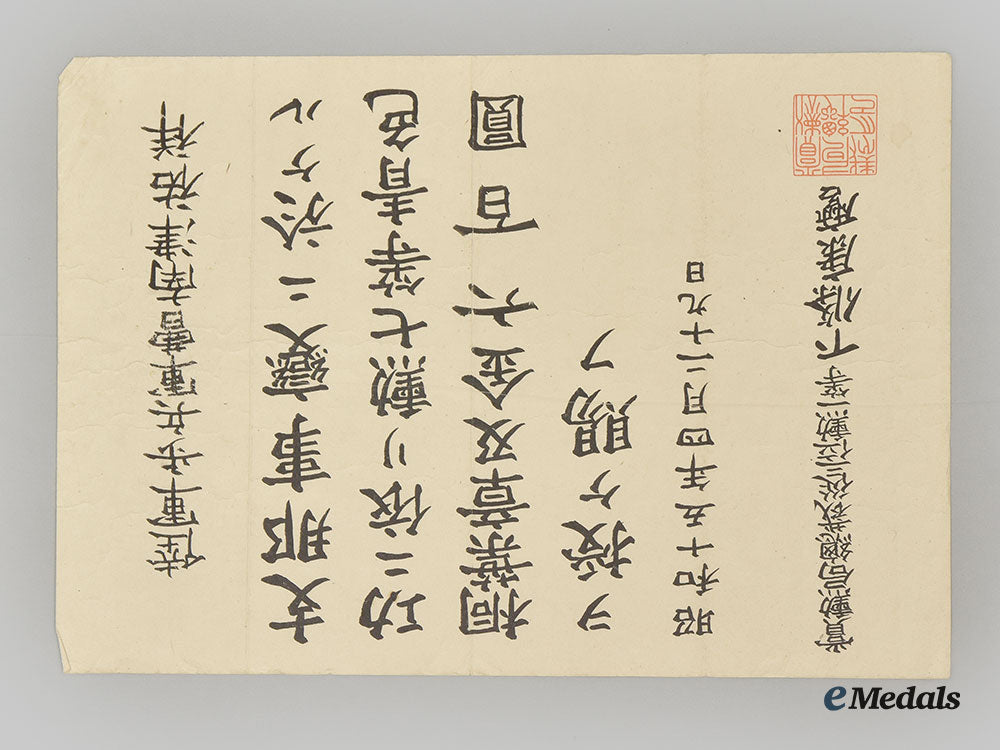 陸軍歩兵軍曹南津祐祥
支那事變ニ於ケル
功ニ依リ勲七等青色
桐葉章及金六百圓
ヲ授ケ賜フ
昭和十五年四月二十九日
賞勲局總裁從三位勲一等下條康麿
eMedals